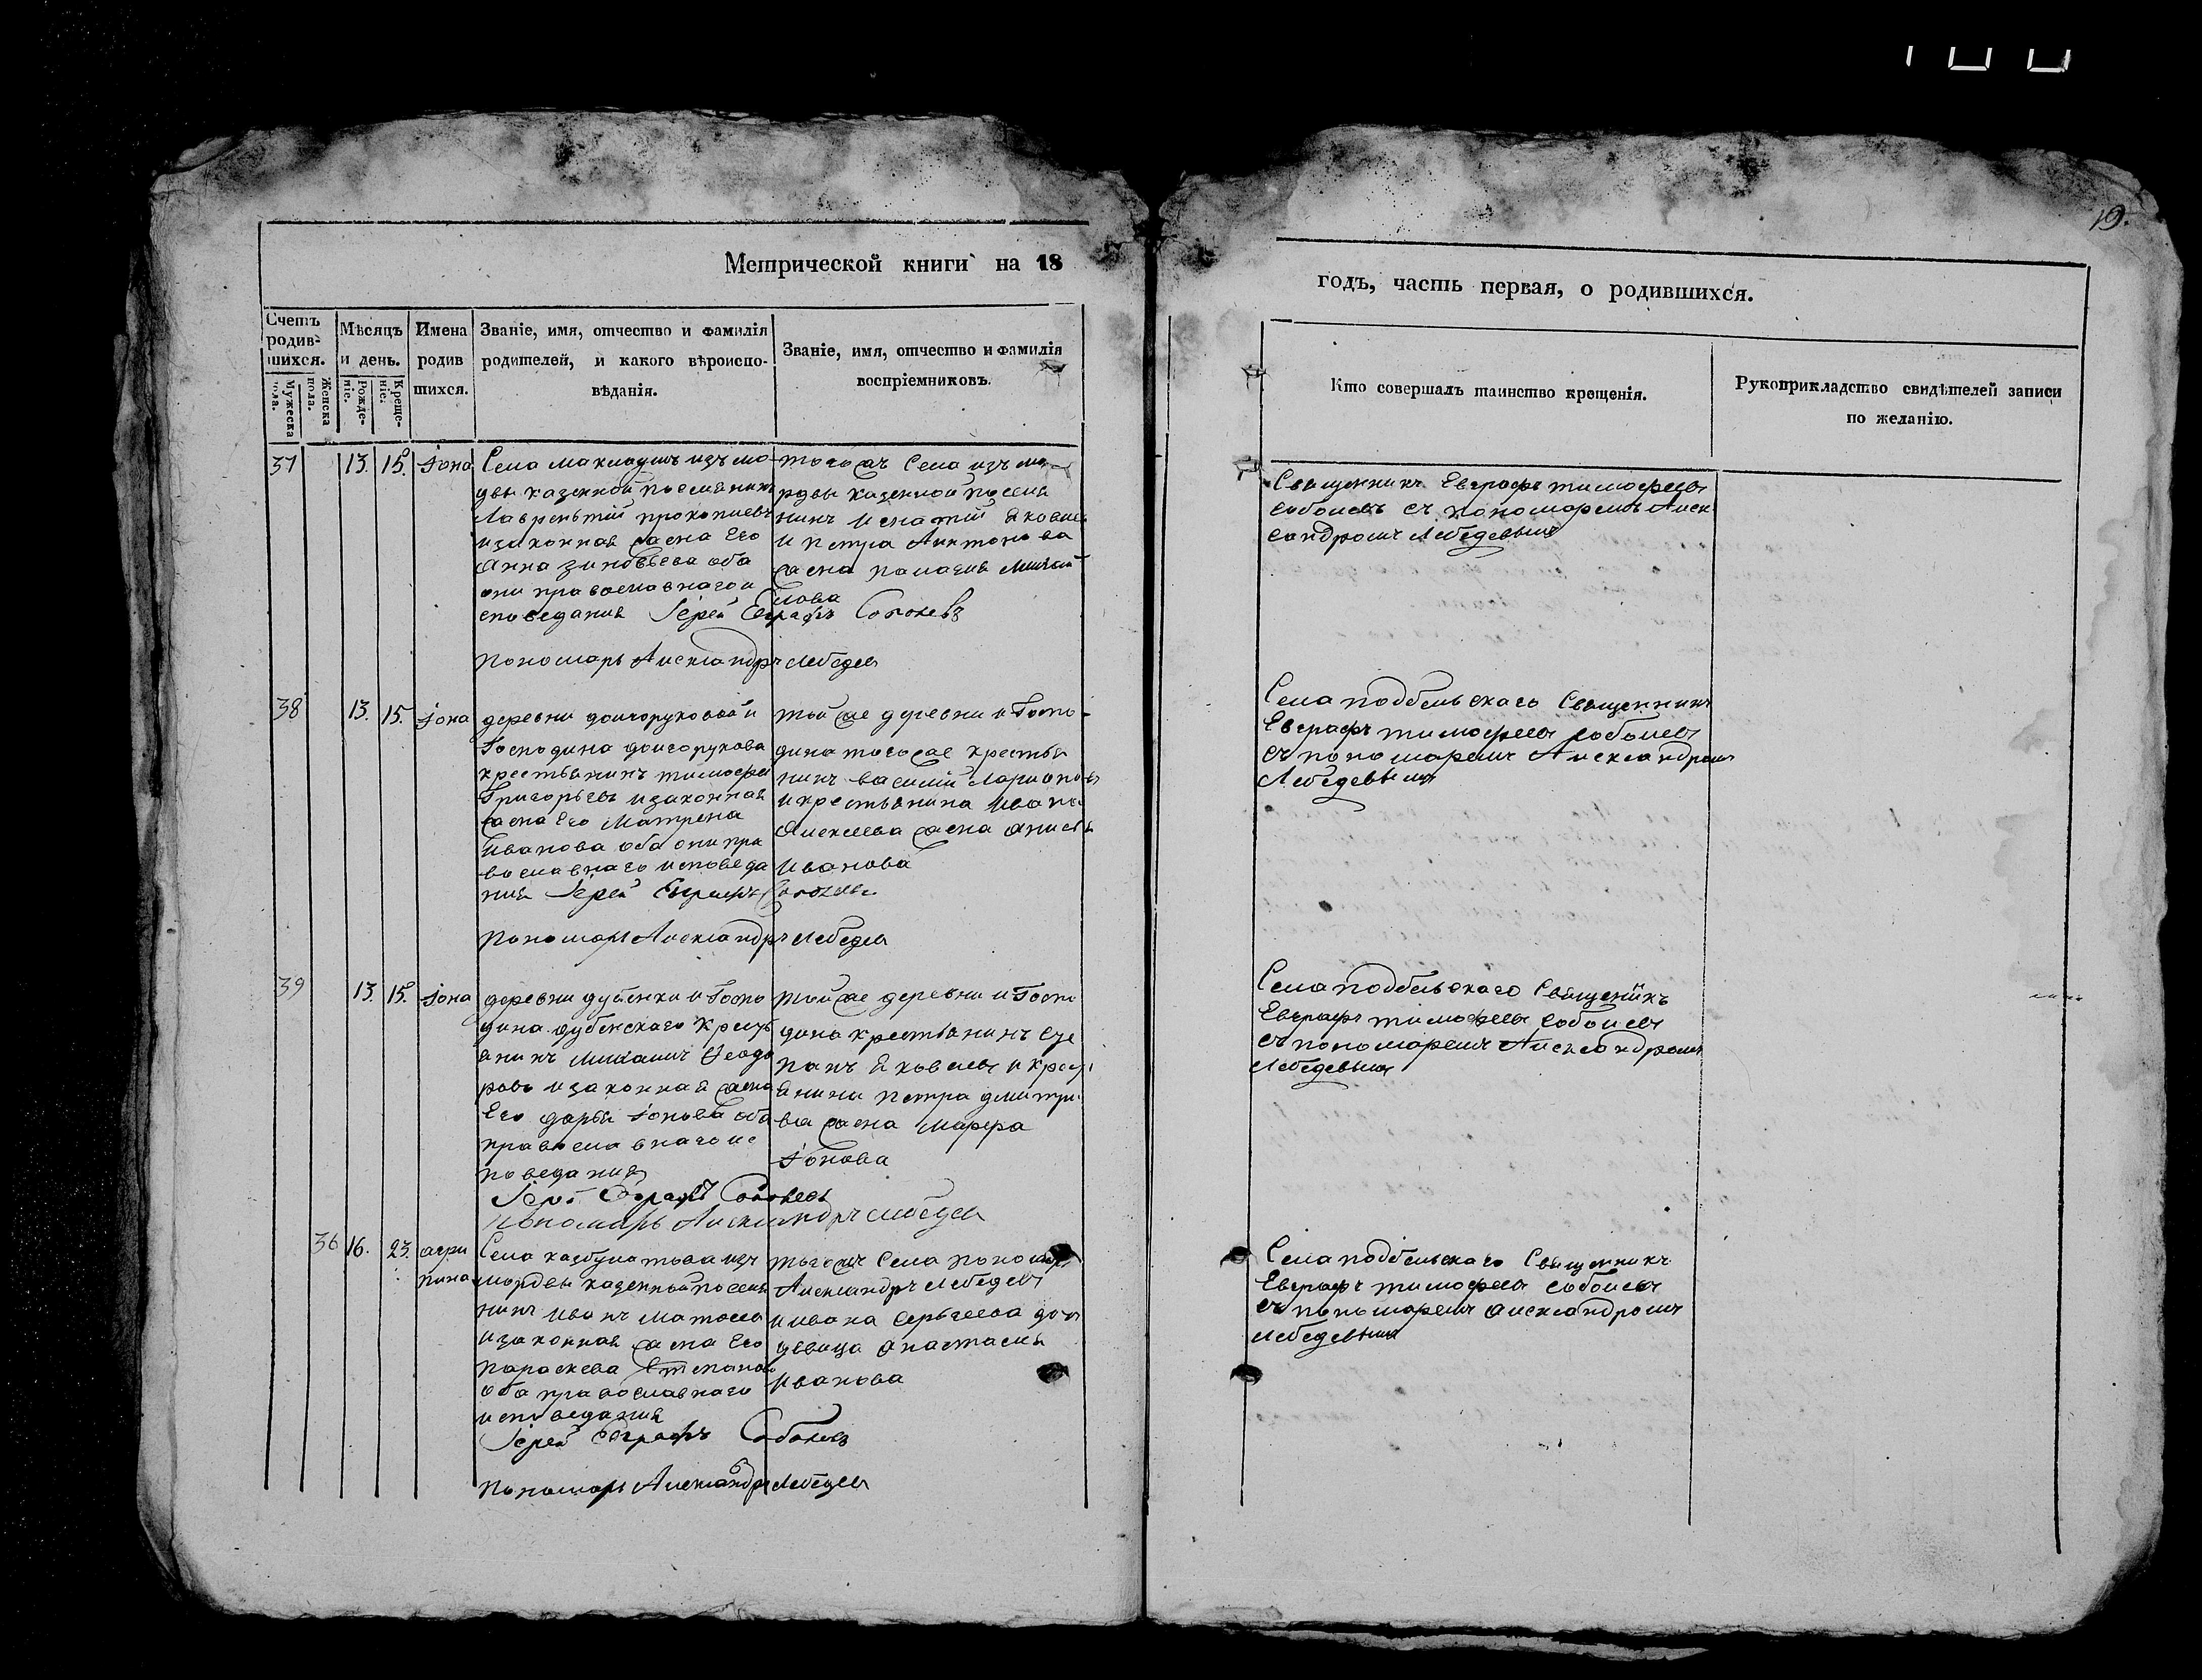 19.
Метрической книги на 18
годъ, часть первая, о родившихся.
Счетъ родив-шихся.
Мужеска пола.
Женска пола.
Мѣсяцъ и день.
Рожде-ніе.
Креще-ніе.
Имена родив шихся.
Званіе, имя, отчество и фамилія
родителей, и какого вѣроиспо-
вѣданія.
Званіе, имя, отчество и фамилія
воспріемниковъ.
Кто совершалъ таинство крещенія.
Рукоприкладство свидѣтелей записи
по желанію.
37 13. 15. Іона
Села маклаушъ изъ мо
двы казенной поселянинъ
Лаврентій прокопиевъ
и законная жена Его
Анна зиновьева оба
они православнаго и
споведания Іерей Евграфъ Соболевъ
пономарь Александръ Лебедев
тогожъ Села изъ мо
рдвы казенной поселя
нинъ Игнатий Яковлев
и петра Антонова
жена палагия Михай
лова
Священникъ Евграфъ тимофеев
соболевъ съ пономаремъ Алек
сандромъ Лебедевымъ
38 13. 15. Іона
деревни долгоруковой и
Господина долгорукова
крестьянинъ тимофеи
Григорьевъ и законная
жена Его Матрена
Иванова оба они пра
вославнаго исповеда
ния Іерей Евграфъ Соболевъ
пономарь Александръ Лебедев
той же деревни и Госпо-
дина тогоже крестья
нинъ василий Ларионовъ
и крестьянина Ивана
Алексеева жена Анисья
Иванова
Села подбельскаго Священникъ
Евграфъ тимофеев соболев
съ пономаремъ Александромъ
Лебедевымъ
39 13. 15. Іона
деревни дубенки и Госпо
дина дубенскаго крест
янинъ Михаилъ Феодо
ровъ и законная жена
Его дарья Іонова оба
православнаго ис
поведания
Іерей Евграфъ Соболевъ
пономарь Александръ Лебедев
той же деревни и Госпо
дина крестьянинъ Сте
панъ Яковлев и крест
янина петра дмитри
ева жена марфа
Іонова
Села подбельскаго Священникъ
Евграфъ тимофеев соболев
съ пономаремъ Александромъ
Лебедевымъ
36 16. 23. агри
пина
Села казбулатова изъ
мордвы казенной поселя
нинъ Иванъ матвеев
и законная жена Его
параскева Степанова
оба православнаго
исповедания
Іерей Евграфъ Соболевъ
пономарь Александръ Лебедев
тогожъ Села пономарь
Александръ Лебедев
и ивана Сергеева дочь
девица анастасия
Иванова
Села подбельскаго Священникъ
Евграфъ тимофеев соболев
съ пономаремъ александромъ
лебедевымъ